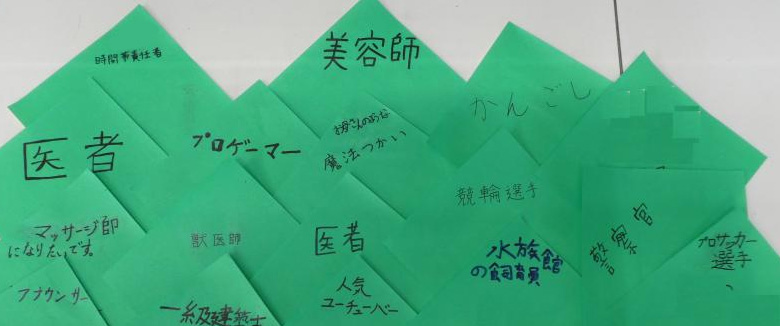 美容師
時間帯責任者
かんごし
お母さんのような
魔法つかい
プロゲーマー
医者
競輪選手
マッサージ師
になりたいです。
獣医師
医者
水族館
の飼育員
警察官
プロサッカー
選手
アナウンサー
一級建築士
人気
ユーチューバー